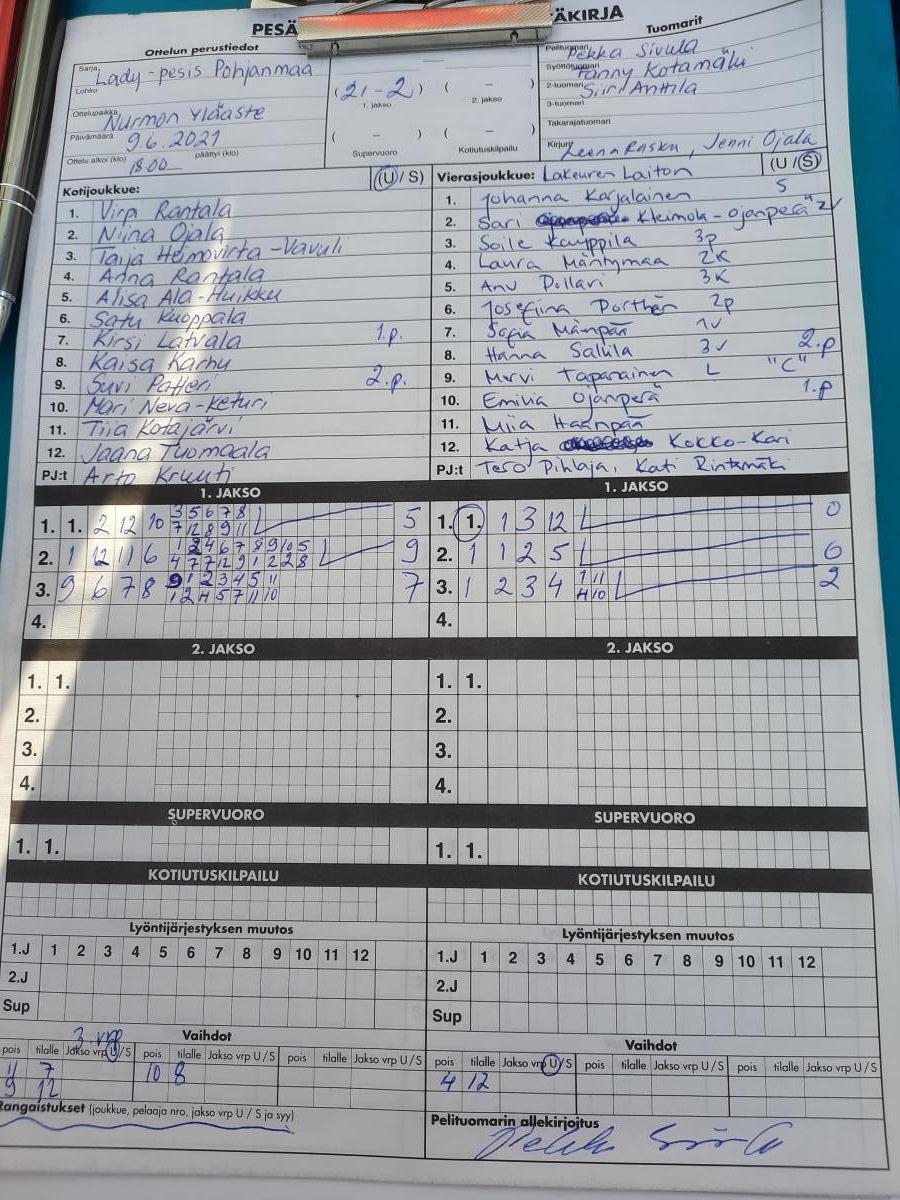 PESÄ
ÄKIRJA
Ottelun perustiedot
Tuomarit
Sarja Lady-pesis Pohjanmaa
Lohko
Ottelupaikka Nurmon Yläaste
Päivämäärä 9.6.2021
Ottelu alkoi (klo) 18.00 päättyi (klo)
(21 - 2) 1. jakso
( - ) 2. jakso
( - ) Supervuoro
( - ) Kotiutuskilpailu
Pelituomari Pekka Sivula
Syöttötuomari Fanny Kotamäki
2-tuomari Siiri Anttila
3-tuomari
Takarajatuomari
Kirjuri Leena Rasku, Jenni Ojala
Kotijoukkue: (U/S)
1. Virpi Rantala
2. Niina Ojala
3. Taija Heimovirta-Vavuli
4. Anna Rantala
5. Alisa Ala-Huikku
6. Satu Kuoppala
7. Kirsi Latvala 1.p.
8. Kaisa Karhu
9. Suvi Patteri 2.p.
10. Mari Neva-Keturi
11. Tiia Kotajärvi
12. Jaana Tuomaala
PJ:t Arto Kruuti
Vierasjoukkue: Lakeuren Laiton (U/S)
1. Johanna Karjalainen S
2. Sari Kleimola-Ojanperä 2v
3. Soile Kauppila 3p
4. Laura Mäntymaa 2K
5. Anu Pollari 3K
6. Josefiina Porthén 2p
7. Sofia Mänpää 1v
8. Hanna Salula 3v 2.p
9. Mervi Tapanainen L "C"
10. Emilia Ojanperä 1.p
11. Miia Haanpää
12. Katja Kokko-Kari
PJ:t Tero Pihlaja, Kati Rintamäki
1. JAKSO
1. 1. 2 12 10 3 5 6 7 8 5
7 12 8 9 11
2. 1 12 11 6 1 2 4 6 7 8 9 10 5 9
4 7 7 12 9 1 2 2 8
3. 9 6 7 8 9 1 2 3 4 5 11 7
1 2 4 5 7 11 10
4.
1. JAKSO
1. 1. 1 3 12 0
2. 1 1 2 5 0
3. 1 2 3 4 1 11 2
4 10
4.
2. JAKSO
1. 1.
2.
3.
4.
2. JAKSO
1. 1.
2.
3.
4.
SUPERVUORO
1. 1.
SUPERVUORO
1. 1.
KOTIUTUSKILPAILU
KOTIUTUSKILPAILU
Lyöntijärjestyksen muutos
1.J 1 2 3 4 5 6 7 8 9 10 11 12
2.J
Sup
Lyöntijärjestyksen muutos
1.J 1 2 3 4 5 6 7 8 9 10 11 12
2.J
Sup
3. vrp
Vaihdot
pois tilalle Jakso vrp U/S pois tilalle Jakso vrp U/S pois tilalle Jakso vrp U/S
11 7 10 8
9 12
Rangaistukset (joukkue, pelaaja nro, jakso vrp U / S ja syy)
Vaihdot
pois tilalle Jakso vrp U/S pois tilalle Jakso vrp U/S pois tilalle Jakso vrp U/S
4 12
Pelituomarin allekirjoitus